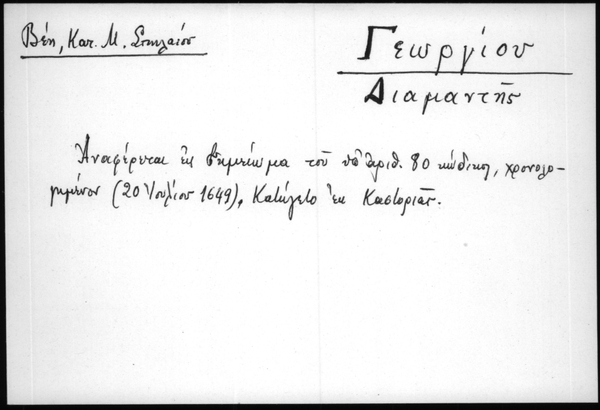 Βέη, Κατ. Μ. Σπηλαίου
Γεωργίου
Διαμαντῆς
Ἀναφέρεται εἰς σημείωμα τοῦ ὑπ' ἀριθ. 80 κώδικος, χρονολο-
γημένον (20 Ἰουλίου 1649), Κατήγετο ἐκ Καστοριᾶς.